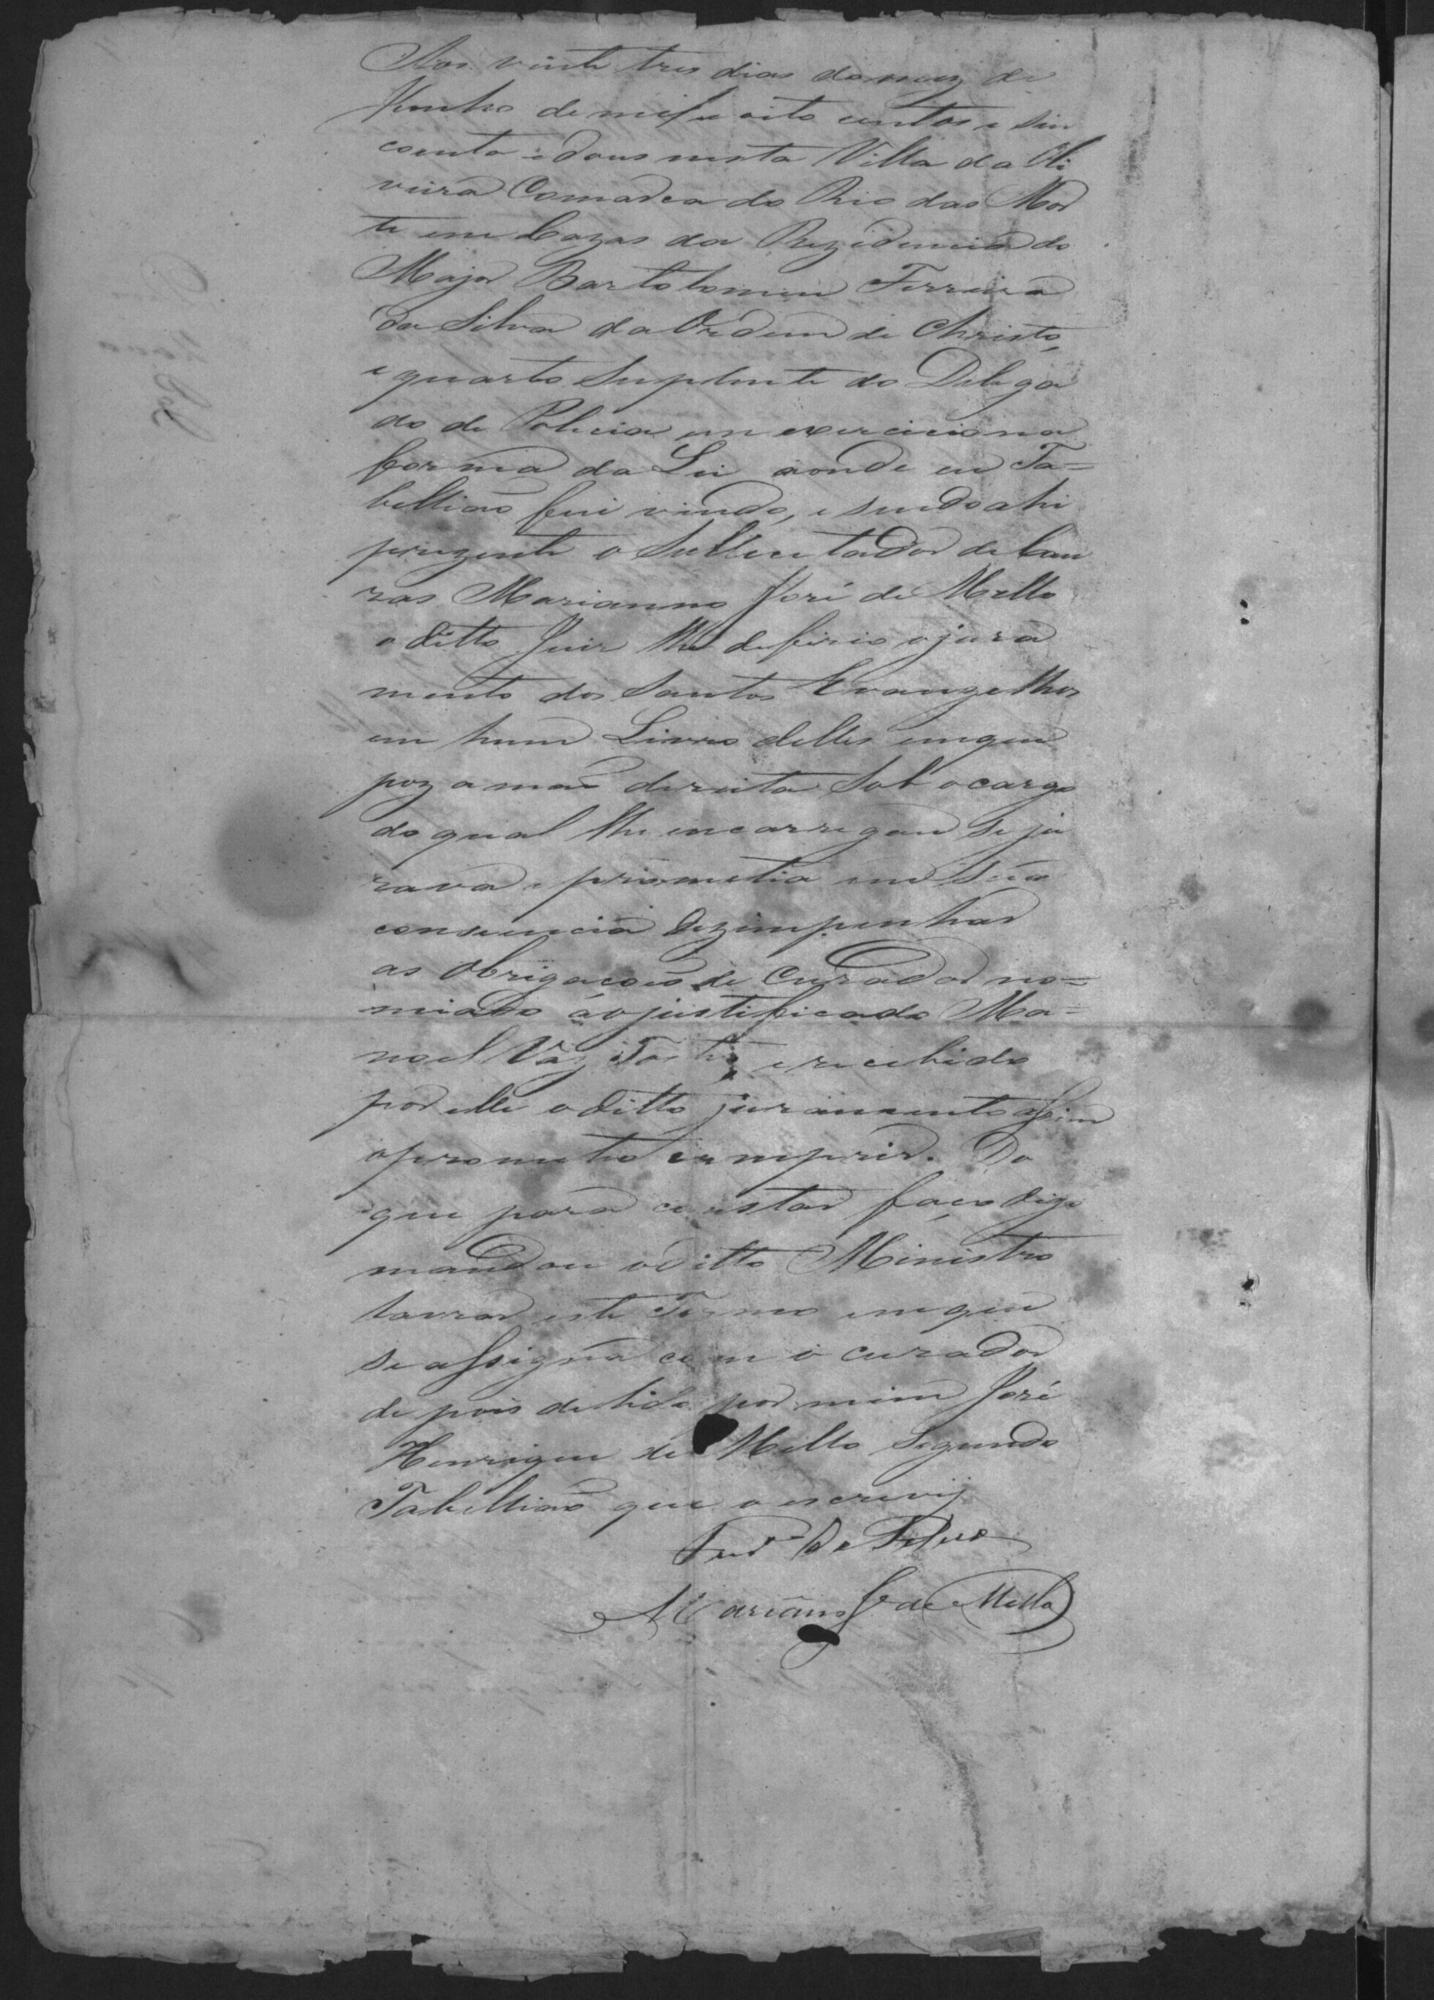 Aos vinte tres dias do mez de
Junho de mil e oito centos e sin
coenta e dous nesta Villa da Oli
veira Comarca do Rio das Mor
te em Cazas da Rezidencia do
Major Bartolomeu Ferreira
da Silva da Ordem de Christo,
e quarto Suplente do Delega
do de Policia em exercicio na
forma da Lei aonde eu Ta=
bellião fui vindo, e sendo ahi
prezente o Sullicitador de Cau
zas Marianno José de Mello
o ditto Juiz lhe deferio o jura
mento dos Santos Evangelhos
em hum Livro delles em que
poz a mão direita Sob o cargo
do qual lhe encarregou Se ju
rava e prometia em Sua
consencia Dezimpenhar
as Obrigacoes de Curador no=
miado ao justificado Ma=
noel Vaz e recebido
por elle o ditto juramento assim
o prometeo cumprir. Do
que para constar faço digo
mandou o ditto Ministro
lavrar este Termo em que
se assigna com o curador
de pois de lido por mim José
Henrique de Mello Segundo
Tabellião que o escrevij
da Silva
Mariano J de Mello